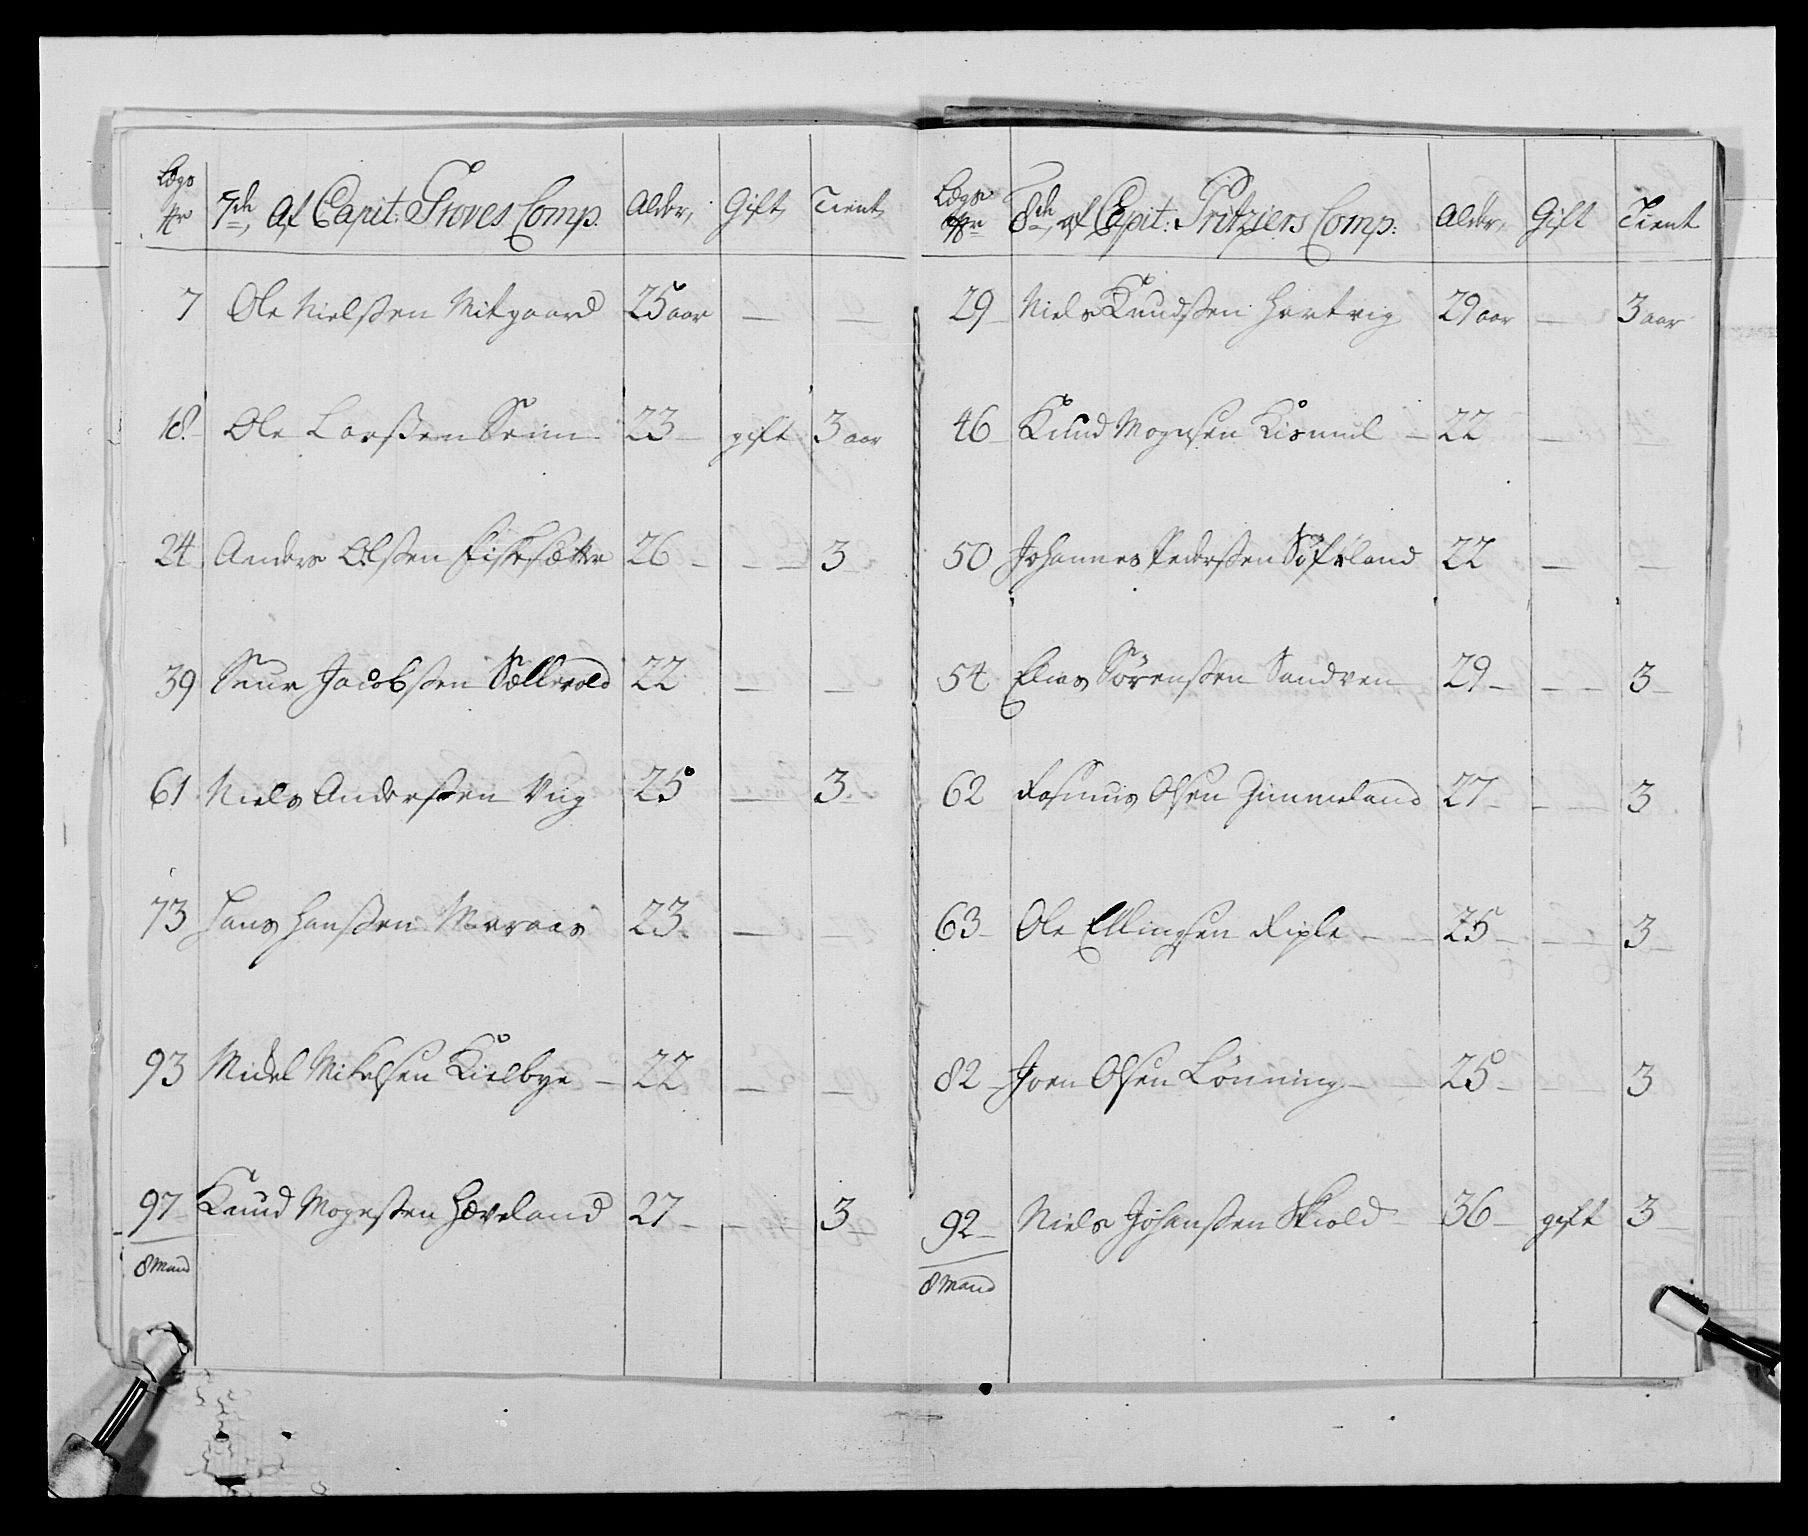 Lægs Nr 7de, af Capit: Troves Comp. Alder, Gift, Tient,
7 Ole Nielsen Mitgaard 25 aar — —
18. Ole Larsen Seim 23 gift 3 aar
24 Anders Olsen Fiskesætter 26 — — 3
39 Siur Jacobsen Sællevold 22 — —
61 Niels Andersen Viig 25 — 3
73 Hans Hansen Maraas 23. — —
93 Mickel Mikelsen Kielbye — 22 — —
97 Knud Mogensen Hæveland 27 — — 3
8 Mand
Lægs Nr 8de, af Capit: Fritziers Comp: Alder, Gift Tient
29 Niels Knudsen Hartvig 29 aar — 3 aar
46 Knud Mognsen Kismul — 22 — —
50 Johannes Pedersen Søfteland 22 — —
54 Elias Sørensen Sandven 29 — — 3
62 Rasmus Olsen Gimmeland 27 — — 3
63 Ole Ellingsen Riple — 25 — — 3
82 Joen Olsen Lønning — 25 — — 3
92 Niels Johansen Skiold 36 gift 3
8 Mand